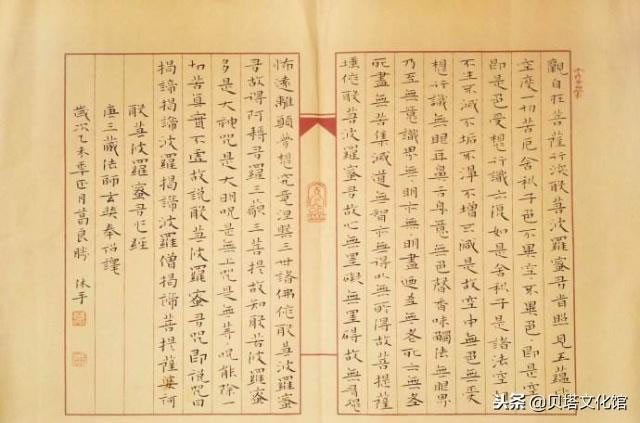 觀自在菩薩行深般若波羅蜜多時照見五蘊皆
空度一切苦厄舍利子色不異空空不異色色即是空空
即是色受想行識亦復如是舍利子是諸法空
不生不滅不垢不淨不增不減是故空中無色無受
想行識無眼耳鼻舌身意無色聲香味觸法無眼界
乃至無意識界無明亦無無明盡乃至無老死亦無老
死盡無苦集滅道無智亦無得以無所得故菩提薩
埵依般若波羅蜜多故心無罣礙無罣礙故無有恐
怖遠離顛夢想究竟涅槃三世諸佛依般若波羅蜜
多故得阿耨多羅三藐三菩提故知般若波羅蜜
多是大神咒是大明咒是無上咒是無等等咒能除一
切苦真實不虛故說般若波羅蜜多咒即說咒曰
揭諦揭諦波羅揭諦波羅僧揭諦菩提薩婆訶
般若波羅蜜多心經
唐三藏法師玄奘奉詔譯
歲次乙未年正月葛良勝 沐手
头条 @贝塔文化馆